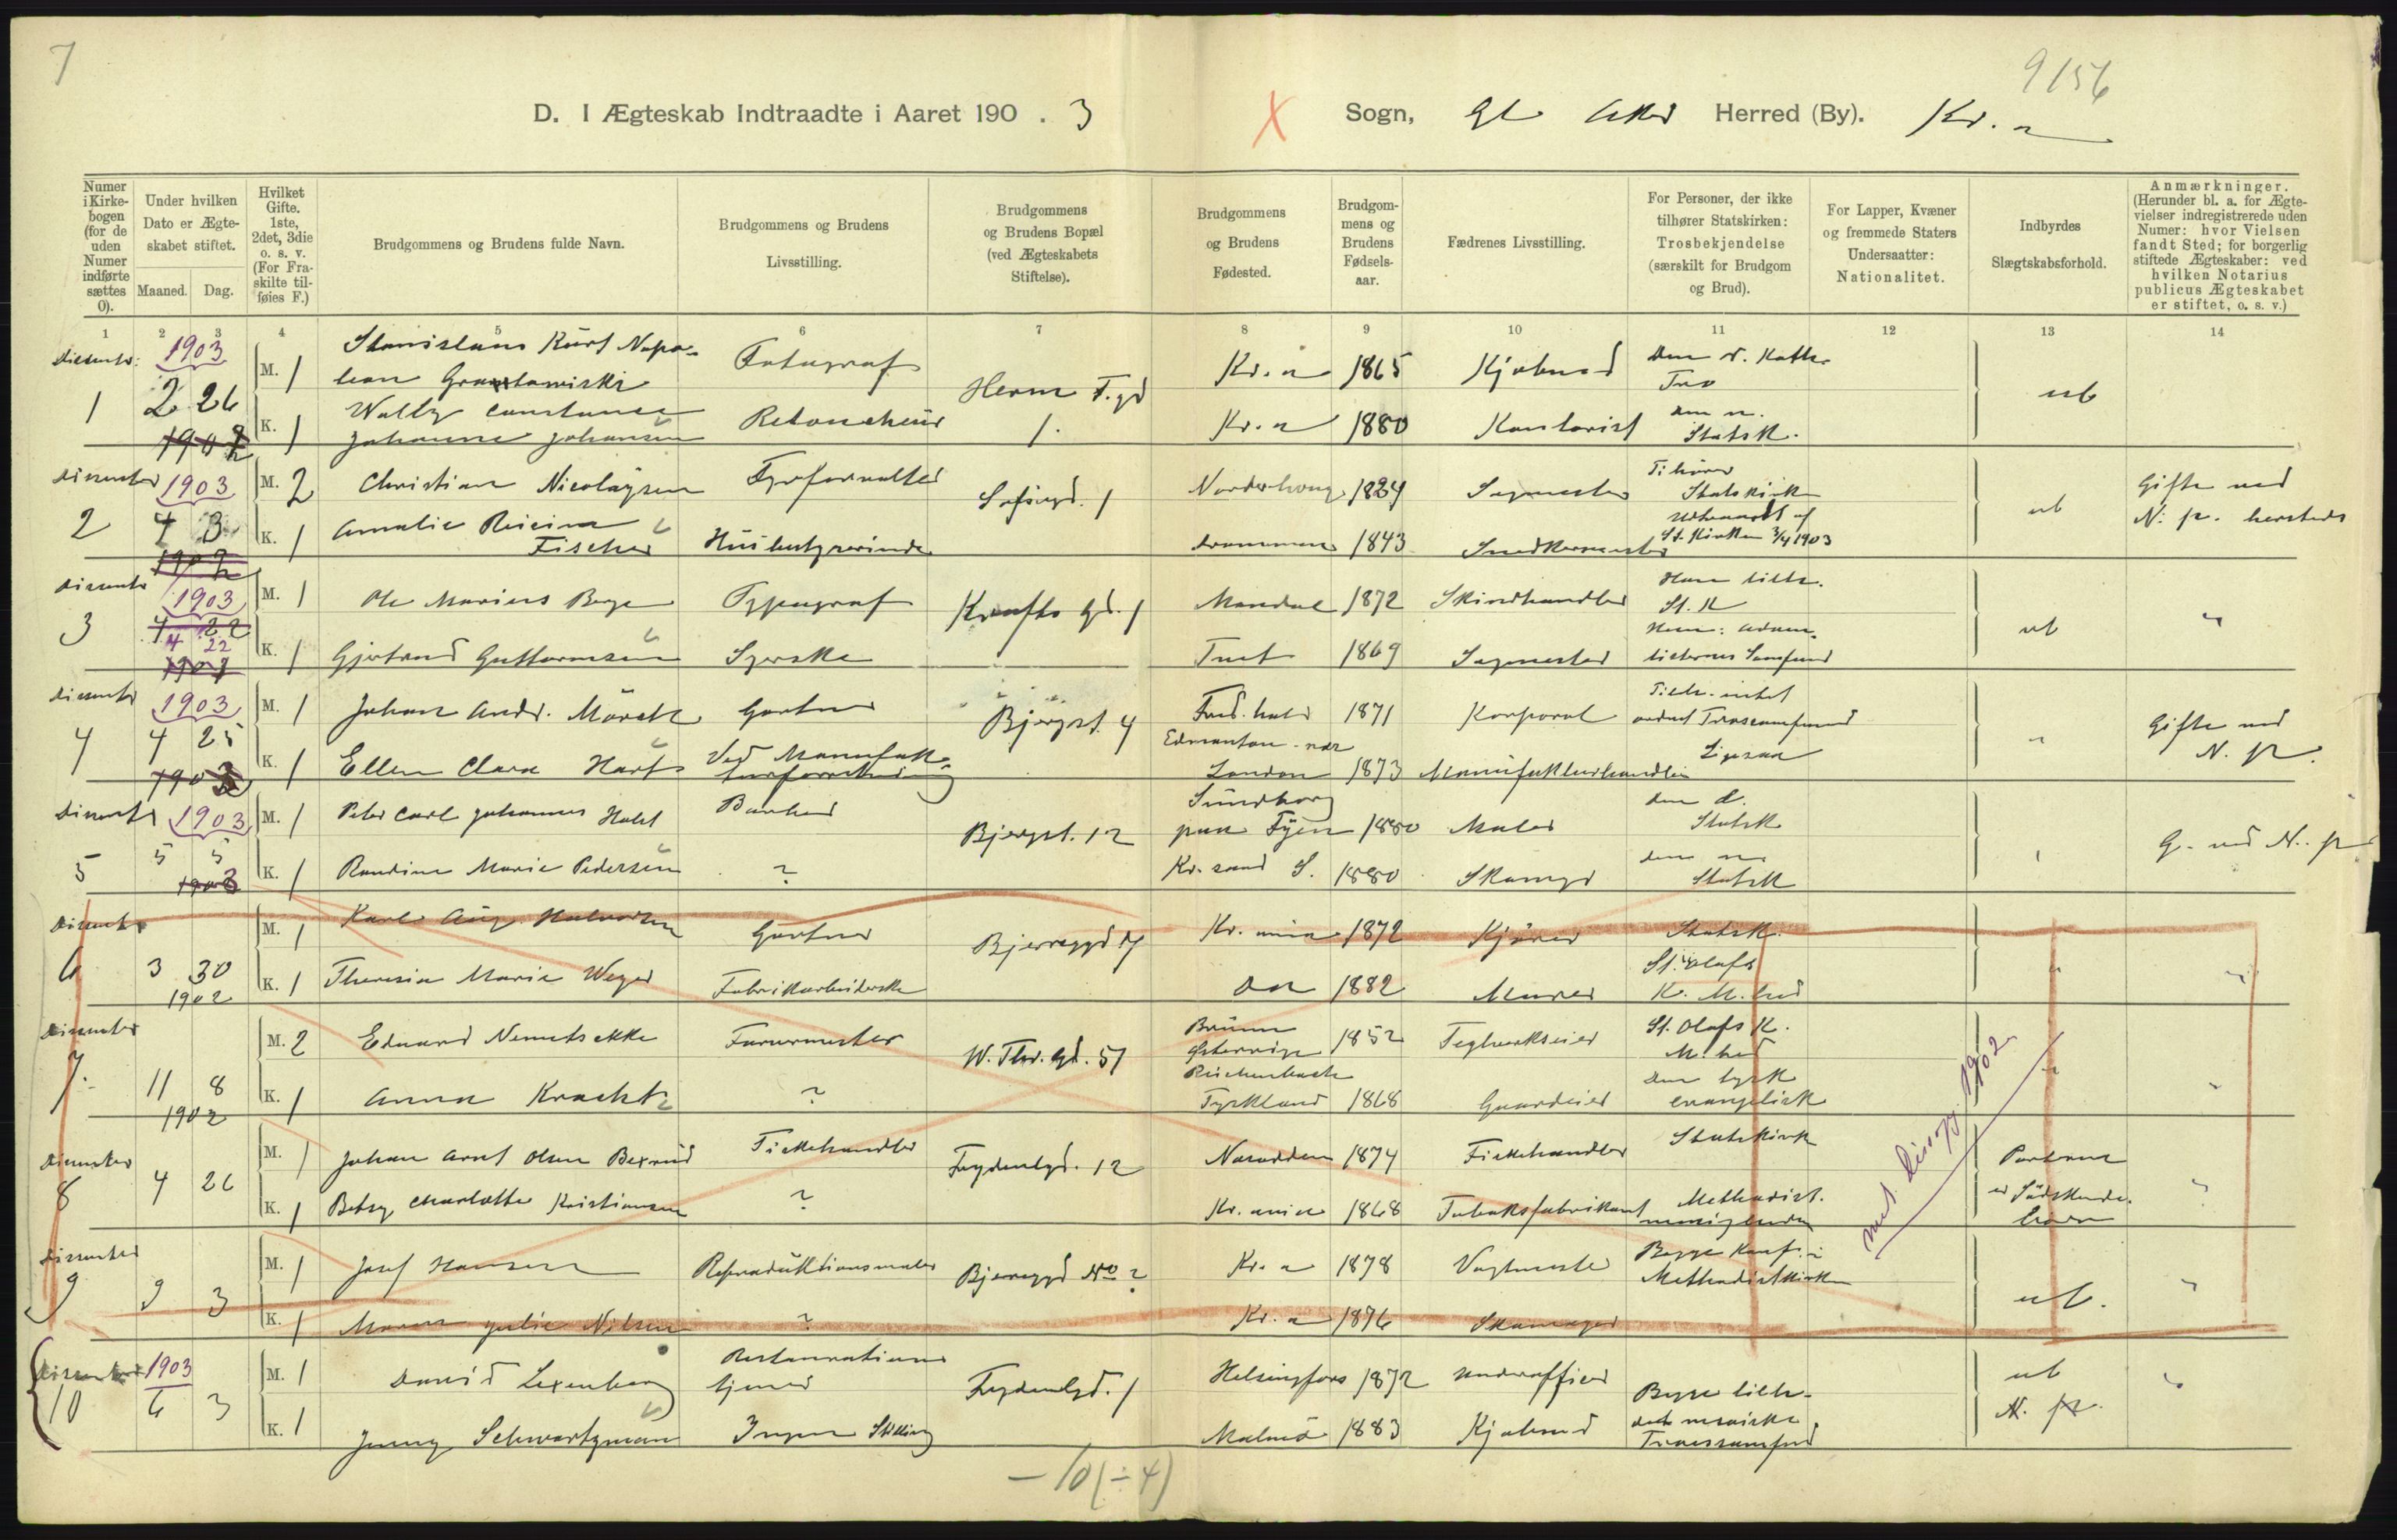 7
9156
D. I Ægteskab Indtraadte i Aaret 190 . 3
X Sogn, Gl Aker Herred (By). Kr. a
Numer i Kirkebogen (for de uden Numer indførte sættes 0).
Under hvilken Dato er Ægteskabet stiftet.
Maaned. Dag.
Hvilket Gifte. 1ste, 2det, 3die o. s. v. (For Fraskilte tilføies F.)
Brudgommens og Brudens fulde Navn.
Brudgommens og Brudens Livsstilling.
Brudgommens og Brudens Bopæl (ved Ægteskabets Stiftelse).
Brudgommens og Brudens Fødested.
Brudgommens og Brudens Fødselsaar.
Fædrenes Livsstilling.
For Personer, der ikke tilhører Statskirken: Trosbekjendelse (særskilt for Brudgom og Brud).
For Lapper, Kvæner og fremmede Staters Undersaatter: Nationalitet.
Indbyrdes Slægtskabsforhold.
Anmærkninger. (Herunder bl. a. for Ægtevielser indregistrerede uden Numer: hvor Vielsen fandt Sted; for borgerlig stiftede Ægteskaber: ved hvilken Notarius publicus Ægteskabet er stiftet, o. s. v.)
1 2 3 4 5 6 7 8 9 10 11 12 13 14
Dissenter: 1903
1 2 26
M. 1 Stanislaus Kurt Napo-
leon Fotograf Herm F. gd 1. Kr. a 1865 Kjøbmd Den r. kath. Tro ub
K. 1 Wally Constance
Johanne Johansen Retoucheur Kr. a 1880 Kontorist den n. Statsk.
Dissenter 1903
2 4 3
M. 2 Christian Nicolaysen Fyrforvalter Sofiegd. 1 Norderhoug 1834 Sagmester Tilhører Statskirken ub Gifte ved N. p. hersteds
K. 1 Amalie
Fischer Husbestyrerinde Drammen 1843 Snedkermester Udtraadt af St. Kirken 3/4 1903
Dissenter 1903
3 4 22
M. 1 Ole Marius Berge Typograf Krafts gd. 1 Mandal 1872 Skindhandler Han tilh. St. K ub "
K. 1 Gjertrud Guttormsen Syerske Tust 1869 Sagmester Hun: Adven-
tisternes Samfund
Dissenter 1903
4 4 25
M. 1 Johan Andr. Mörck Gartner Bjergst. 4 Fred.hald 1871 Korporal Tilh. intet andet Trossamfund " Gifte ved N. p.
K. 1 Ellen Clara Hart Ved Manufak-
turforretning Edmonton nær
London 1873 Manufakturhandler Ligesaa
Dissenter 1903
5 5 5
M. 1 Peter Carl Johannes Holst Bjergst. 12 Svendborg
paa Fyen 1880 Maler den d. Statsk G. ved N. p
K. 1 Randine Marie Pedersen ? Kr. sand S. 1880 Skomgr den n. Statsk
Dissenter
6 3 30
1902
M. 1 Karl Aug. Halvorsen Gartner Bjerreggd 17 Kr. ania 1872 Kjører Statsk. " "
K. 1 Theresia Marie Weyer Fabrikarbeiderske Do 1882 Murer St. Olafs
K. M.hed
Dissenter
7. 11 8
1902
M. 2 Eduard Nemetschke Farvermester W. Thr. gd. 51 Brünn
Østerrige 1852 Teglverkseier St. Olafs K.
M.hed " "
K. 1 Anna Kracht ? Reichenbach
Tyskland 1868 Gaardeier Den tysk
evangelisk
Dissenter
8 4 26
M. 1 Johan Arnt Olsen Bexrud Fiskehandler Frydenlgd. 12 Nesodden 1874 Fiskehandler Statskirk Parterne
er Södskende-
børn "
K. 1 Betsy Charlotte Kristiansen ? Kr. ania 1868 Tobaksfabrikant Methodist-
menigheden
Dissenter
9 9 3
M. 1 Josef Hansen Reproduktionsmaler Bjerreggd No ? Kr. a 1878 Vagtmester Begge Konf. i
Methodistkirken ub. "
K. 1 Maren Julie Nilsen ? Kr. a 1876 Skomager
1902
Dissenter 1903
10 6 3
M. 1 David Lexenberg Restaurations
tjener Frydenlgd. 1 Helsingfors 1872 Underofficer Begge tilh.
det mosaiske
Trossamfund ub
N. p. "
K. 1 Jenny Schwartzman Ingen Stilling Malmö 1883 Kjøbmd
— 10 (÷ 4)